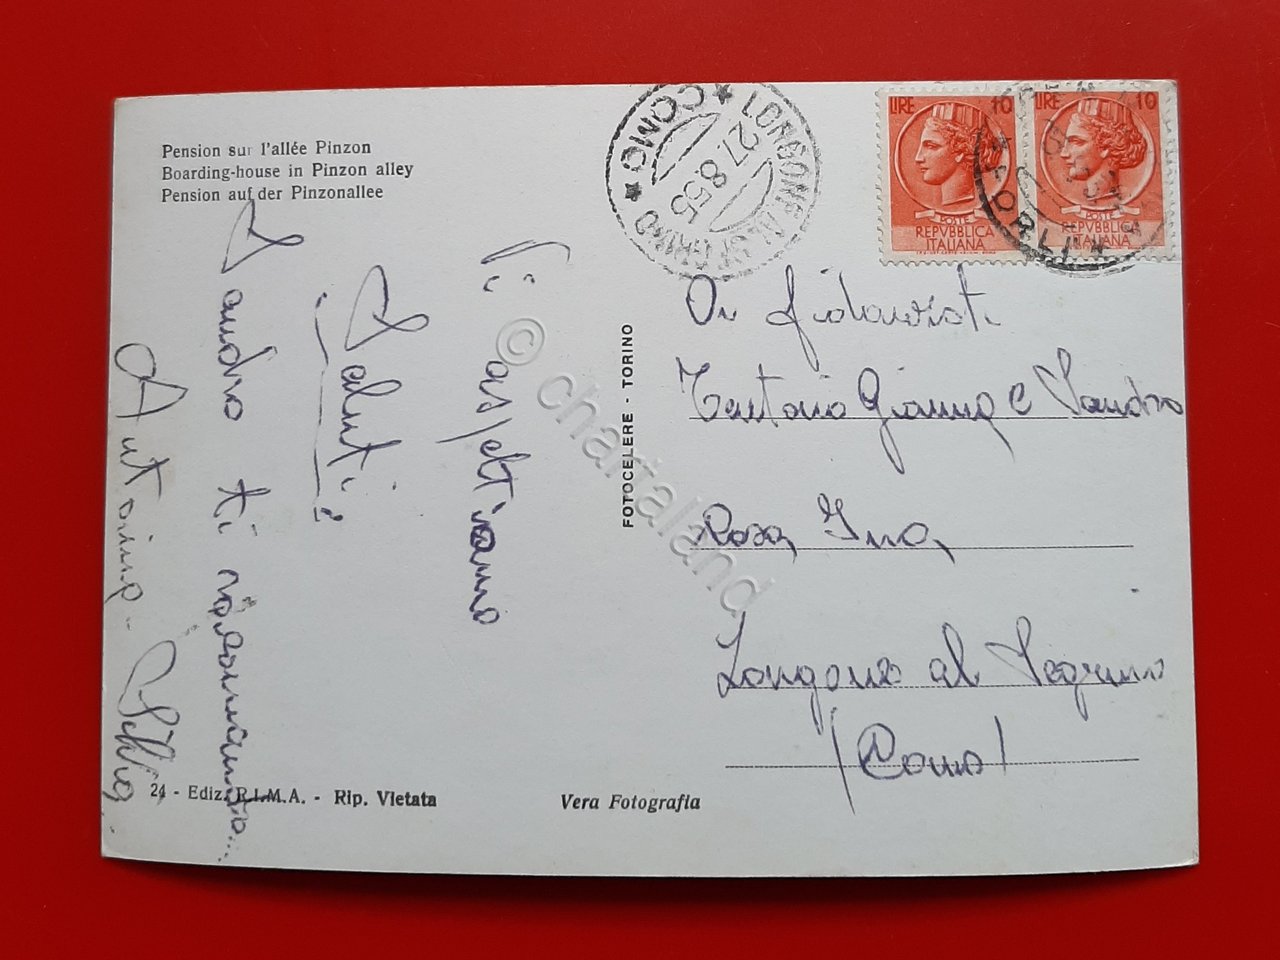 Pension sur l'allée Pinzon
Boarding-house in Pinzon alley
Pension auf der Pinzonallee
Vi aspettiamo
Saluti
Sandro ti raccomando...
Antonio
LONGONE AL SEGRINO
27.8.55
★ COMO ★
LIRE 10
POSTE
REPVBBLICA
ITALIANA
LIRE 10
POSTE
REPVBBLICA
ITALIANA
FORLI
Ai fidanzati
Gianna e Sandro
Rosa
Longone al Segrino
(Como)
FOTOCELERE - TORINO
24 - Ediz. R.I.M.A. - Rip. Vietata
Vera Fotografia
© chartaland